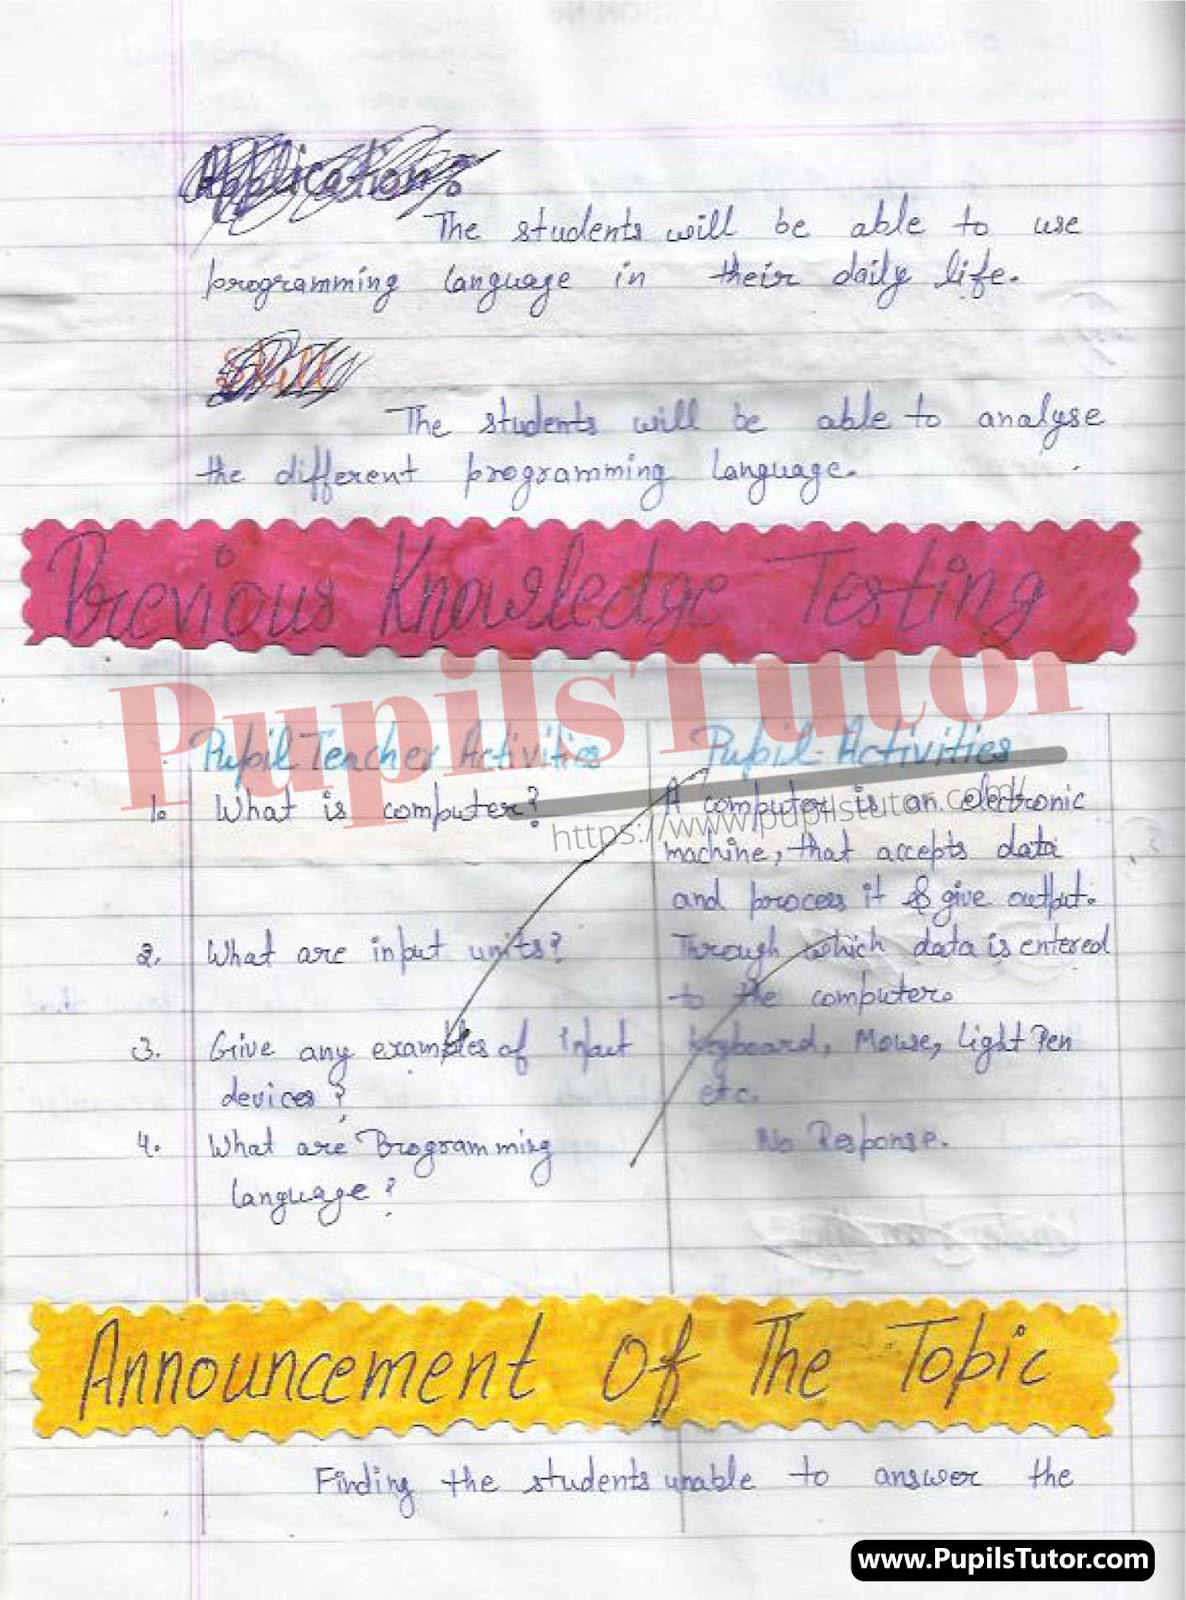 Application.
The students will be able to use
programming language in their daily life.
Skill
The students will be able to analyse
the different programming language.
Previous Knowledge Testing
PupilsTutor
https://www.pupilstutor.com/
Pupil Teacher Activities
Pupil-Activities
1. What is computer?
A computer is an electronic
machine, that accepts data
and process it & give output.
2. What are input units?
Through which data is entered
to the computer.
3. Give any examples of input
devices?
Keyboard, Mouse, Light Pen
etc.
4. What are Programming
language?
No Response.
Announcement Of The Topic
Finding the students unable to answer the
www.PupilsTutor.com